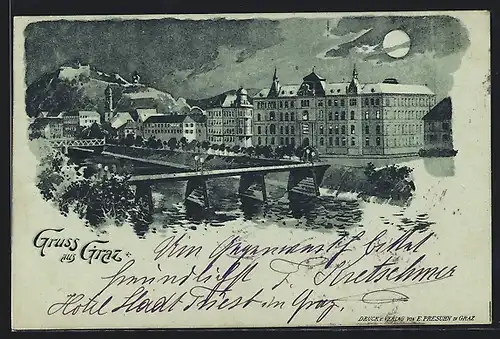 Gruss
aus Graz
Um Gegenbesuch bittet
freundlichst d. Kretschmer
Hotel Stadt Triest in Graz.
DRUCK u. VERLAG VON E. PRESUHN IN GRAZ